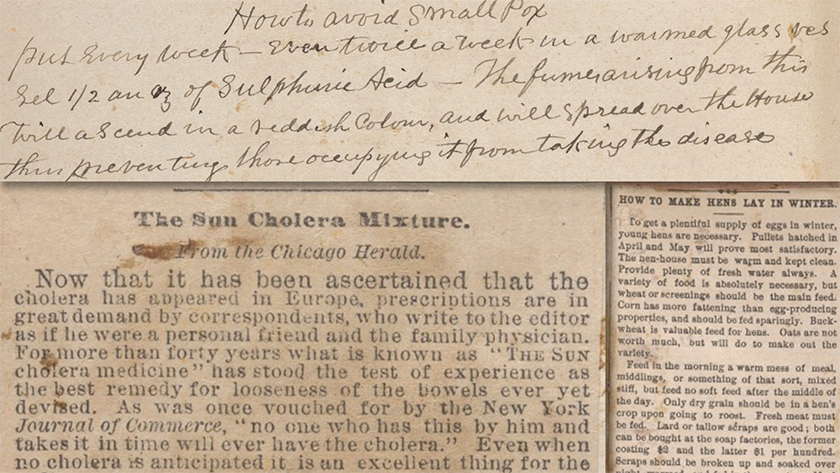 How to avoid Small Pox
put Every week – Even twice a week in a warmed glass ves
sel 1/2 an oz of Sulphuric Acid – The fumes arising from this
will ascend in a reddish Colour, and will Spread over the House
thus preventing those occupying it from taking the disease
The Sun Cholera Mixture.
From the Chicago Herald.
Now that it has been ascertained that the
cholera has appeared in Europe, prescriptions are in
great demand by correspondents, who write to the editor
as if he were a personal friend and the family physician.
For more than forty years what is known as "THE SUN
cholera medicine" has stood the test of experience as
the best remedy for looseness of the bowels ever yet
devised. As was once vouched for by the New York
Journal of Commerce, "no one who has this by him and
takes it in time will ever have the cholera." Even when
no cholera is anticipated it is an excellent thing for the
HOW TO MAKE HENS LAY IN WINTER.
To get a plentiful supply of eggs in winter,
young hens are necessary. Pullets hatched in
April and May will prove most satisfactory.
The hen-house must be warm and kept clean.
Provide plenty of fresh water always. A
variety of food is absolutely necessary, but
wheat or screenings should be the main feed.
Corn has more fattening than egg-producing
properties, and should be fed sparingly. Buck-
wheat is valuable feed for hens. Oats are not
worth much, but will do to make out the
variety.
Feed in the morning a warm mess of meal,
middlings, or something of that sort, mixed
stiff, but feed no soft feed after the middle of
the day. Only dry grain should be in a hen's
crop upon going to roost. Fresh meat must
be fed. Lard or tallow scraps are good; both
can be bought at the soap factories, the former
costing $2 and the latter $1 per hundred.
Scraps should be broken up and soaked over